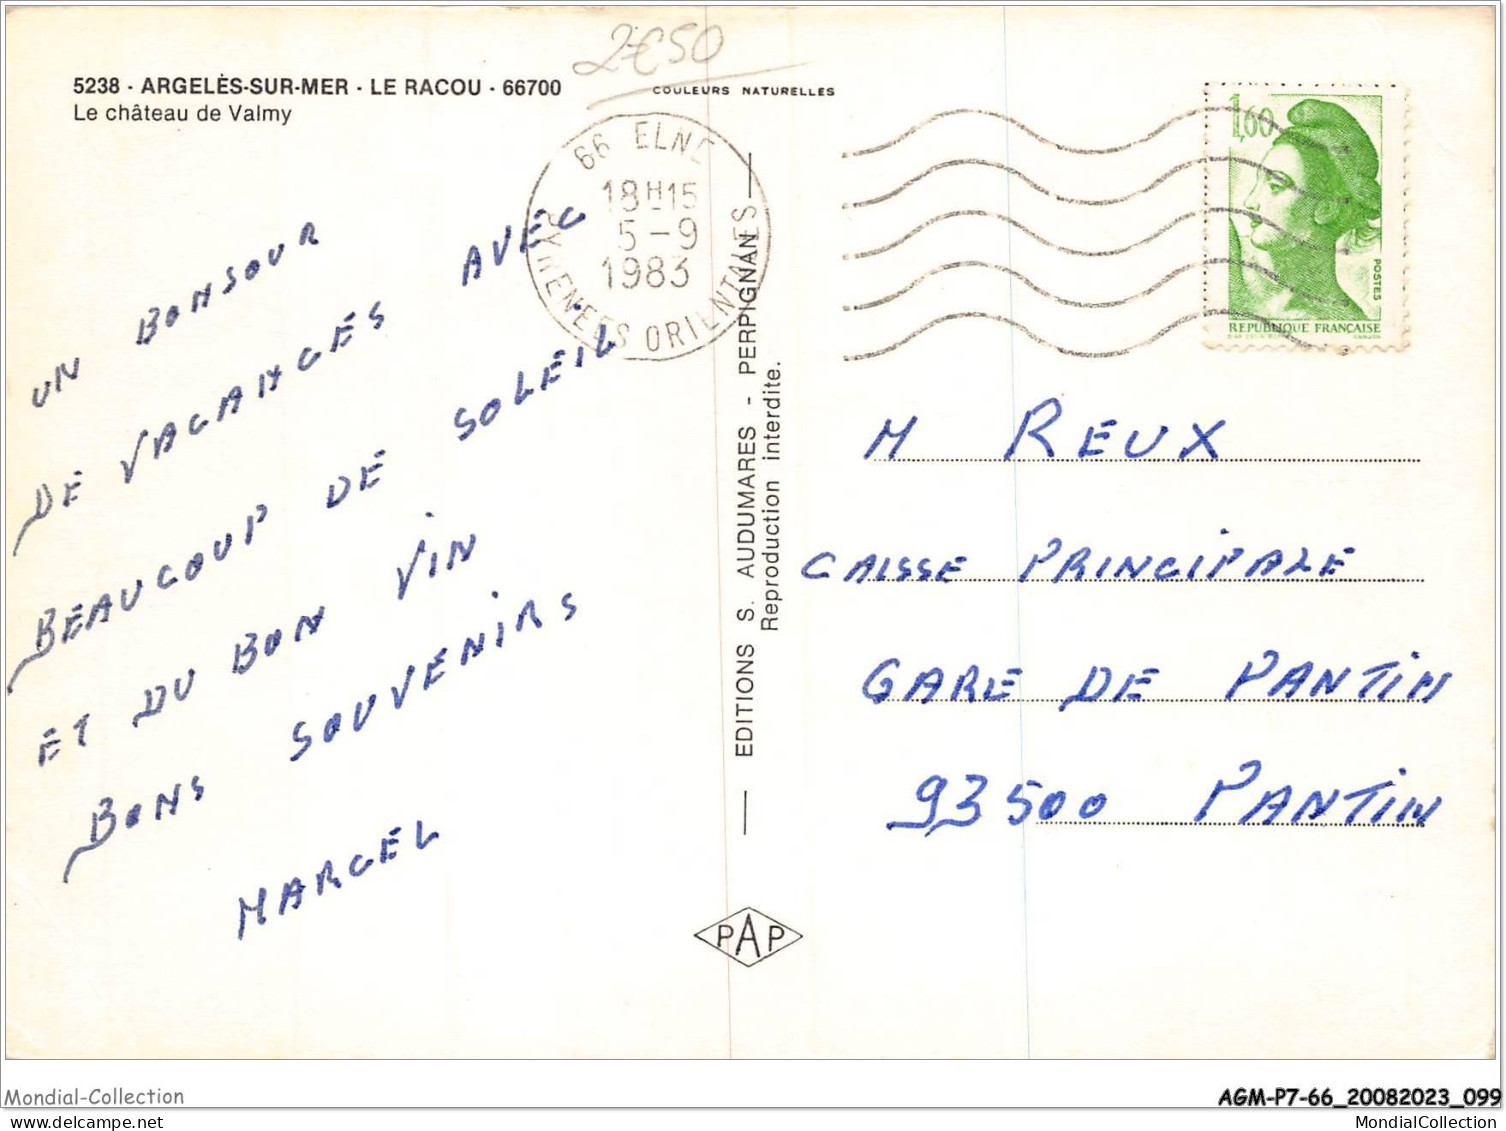 2€50
5238 - ARGELÈS-SUR-MER - LE RACOU - 66700
Le château de Valmy
COULEURS NATURELLES
66 ELNE
18H15
5-9
1983
PYRENEES ORIENTALES
1,60
POSTES
REPUBLIQUE FRANÇAISE
UN BONSOUR
DE VACANCES AVEC
BEAUCOUP DE SOLEIL
ET DU BON VIN
BONS SOUVENIRS
MARCEL
EDITIONS S. AUDUMARES - PERPIGNAN
Reproduction interdite.
M REUX
CAISSE PRINCIPALE
GARE DE PANTIN
93500 PANTIN
PAP
Mondial-Collection
AGM-P7-66_20082023_099
MondialCollection
MondialCollection